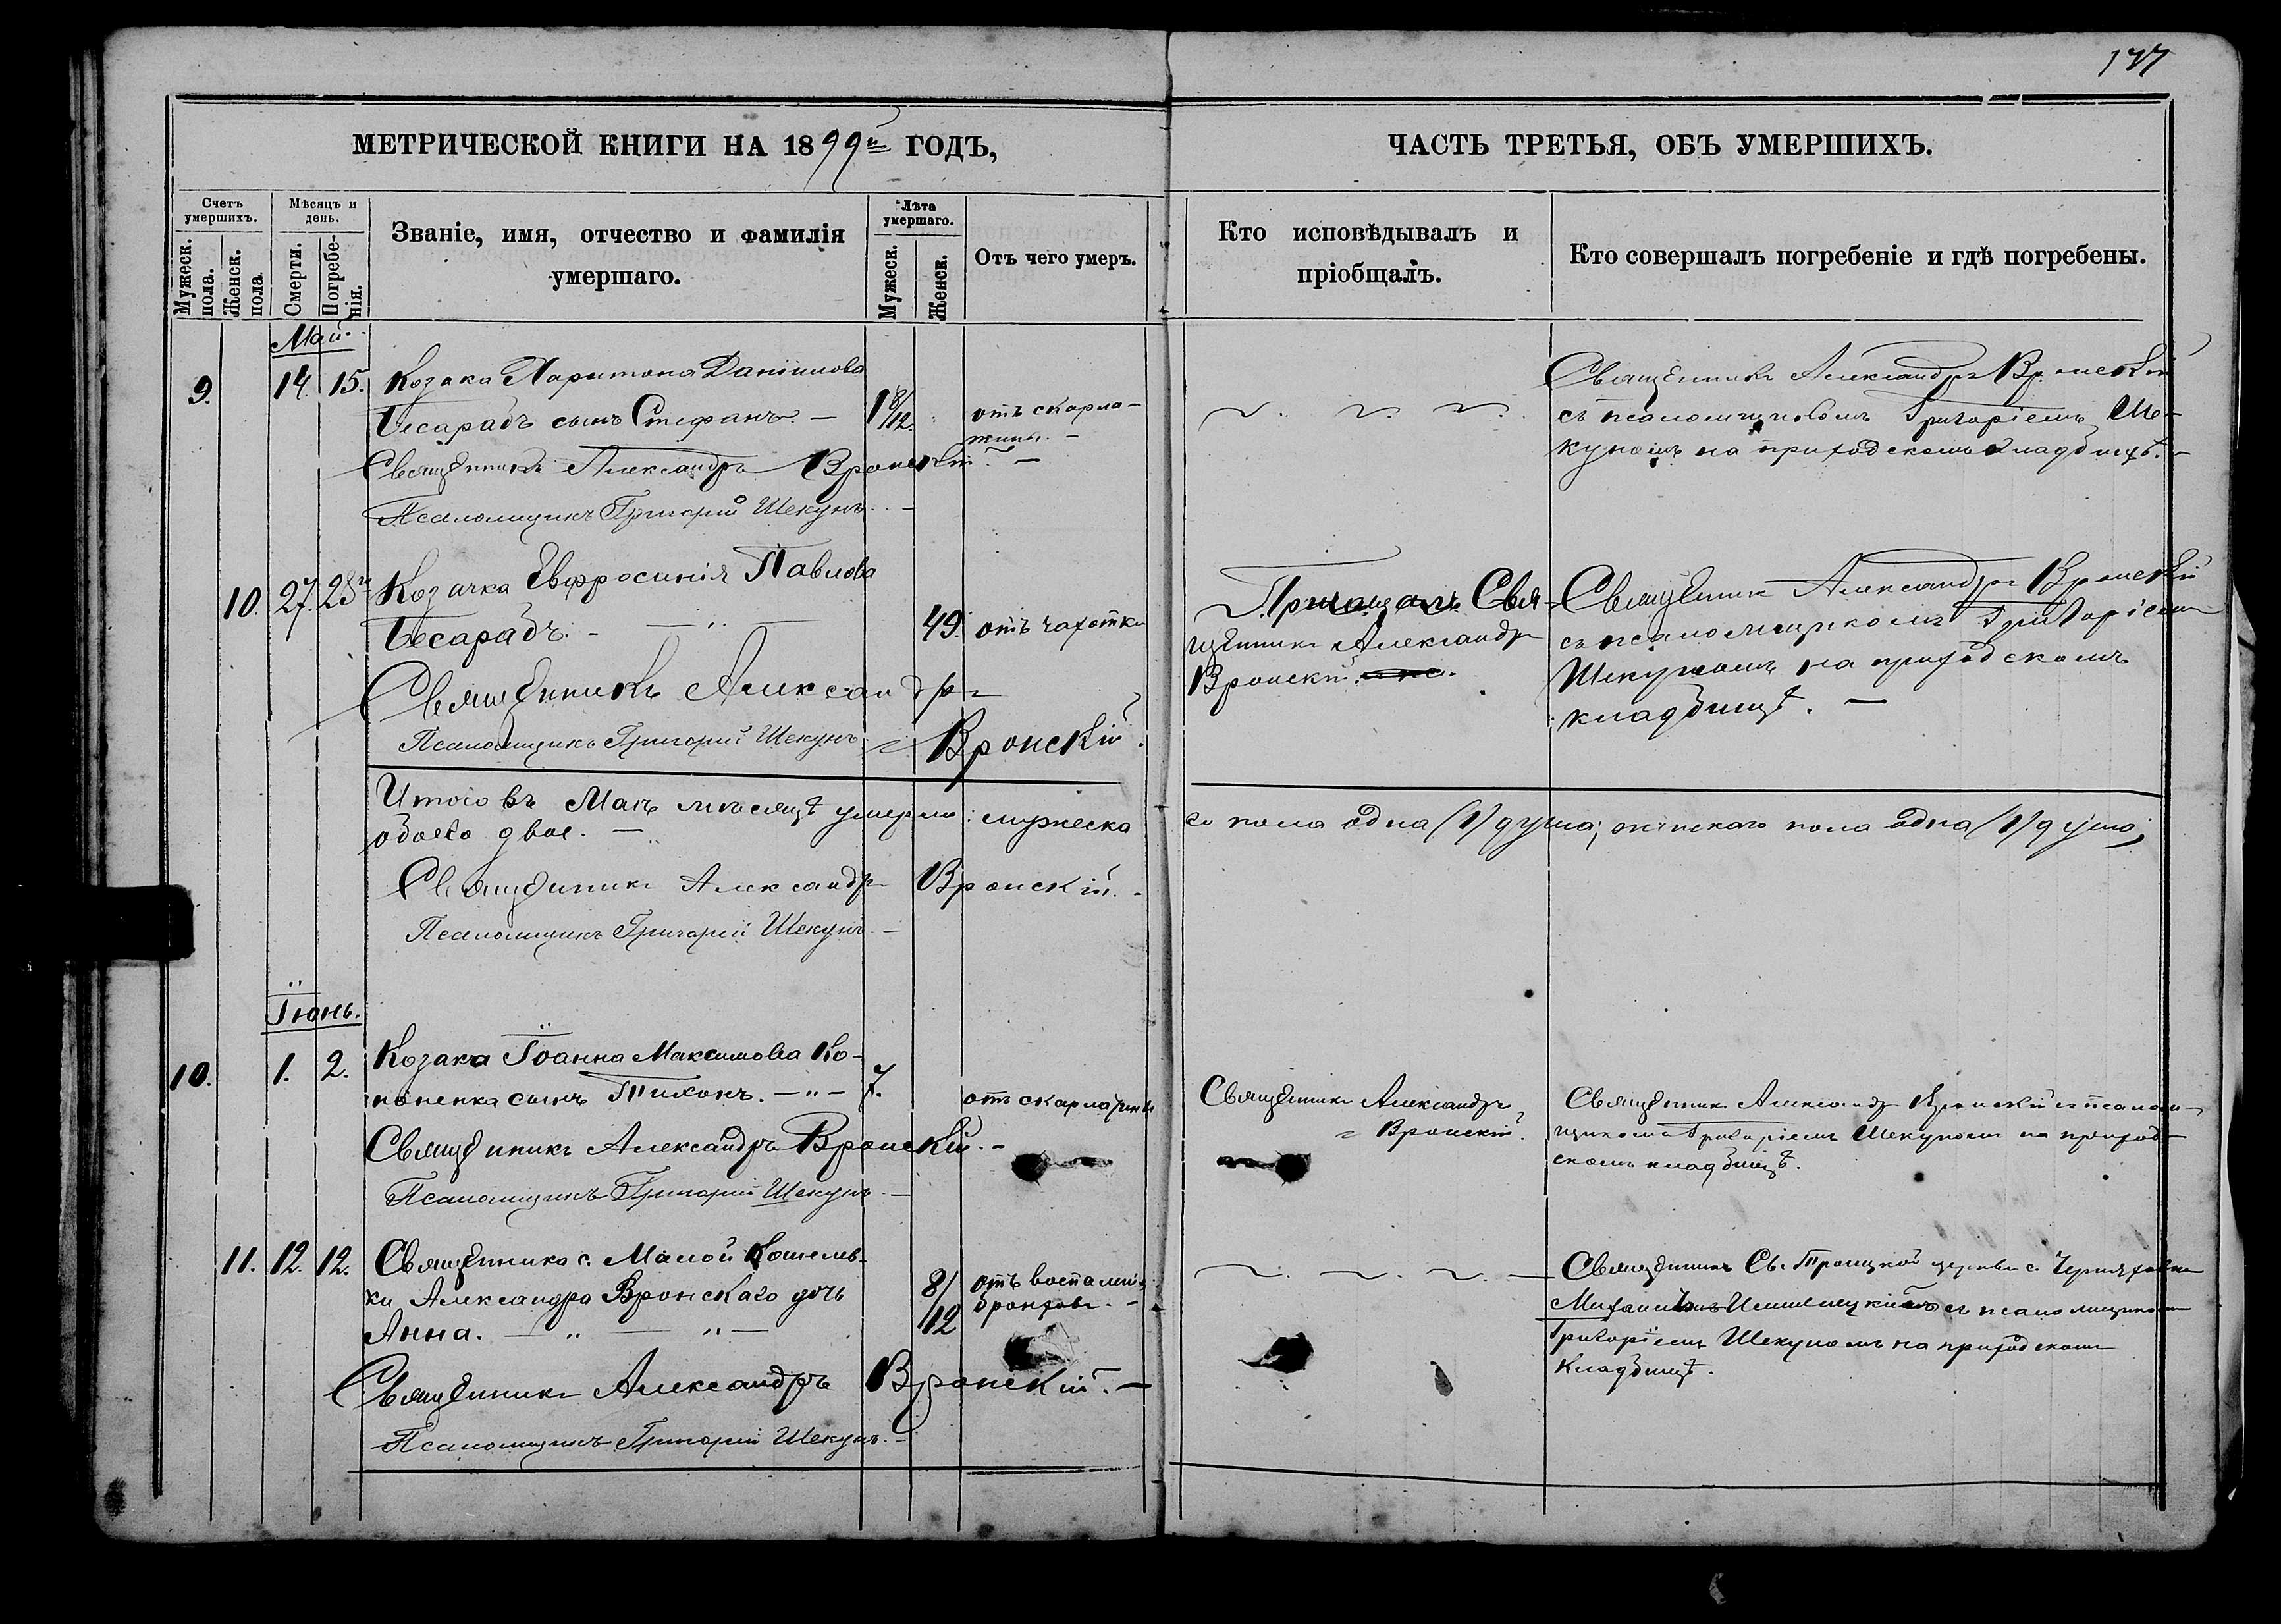 177
МЕТРИЧЕСКОЙ КНИГИ НА 1899й ГОДЪ,
ЧАСТЬ ТРЕТЬЯ, ОБЪ УМЕРШИХЪ.
Счетъ умершихъ.
Мужеск. пола.
Женск. пола
Мѣсяцъ и день.
Смерти.
Погребенія.
Званіе, имя, отчество и фамилія
умершаго.
Лѣта умершаго.
Мужеск.
Женск.
Отъ чего умеръ.
Кто исповѣдывалъ и
пріобщалъ.
Кто совершалъ погребеніе и гдѣ погребены.
Май.
9. 14. 15. Козака Харитона Даніилова
Бесарабъ сынъ Стефанъ. —
1 8/12.
отъ скарла-
тины. —
Священникъ Александръ Вронскій
съ псаломщикомъ Григоріемъ Ше-
куномъ на приходскомъ кладбищѣ. —
Священникъ Александръ Вронскій. —
Псаломщикъ Григорій Шекунъ. —
10. 27. 28 Козачка Евфросинія Павлова
Бесарабъ. — " —
49. отъ чахотки
Пріобщалъ Свя-
щенникъ Александръ
Вронскій.
Священникъ Александръ Вронскій
съ псаломщикомъ Григоріемъ
Шекуномъ на приходскомъ
кладбищѣ. —
Священникъ Александръ
Вронскій.
Псаломщикъ Григорій Шекунъ
Итого въ Маѣ мѣсяцѣ умерло: мужеска
го пола одна /1/ душа; женскаго пола одна /1/ душа;
обоего двое. —
Священникъ Александръ Вронскій. —
Псаломщикъ Григорій Шекунъ —
Іюнь.
10. 1. 2. Козака Іоанна Максимова Ко-
ноненка сынъ Тихонъ. — " — 7.
отъ скарлатины
Священникъ Александръ
Вронскій.
Священникъ Александръ Вронскій съ псалом-
щикомъ Григоріемъ Шекуномъ на приход-
скомъ кладбищѣ.
Священникъ Александръ Вронскій. —
Псаломщикъ Григорій Шекунъ. —
11. 12. 12. Священника с. Малой Кошелев-
ки Александра Вронскаго дочь
Анна. — " — " —
8/12
отъ воспаленія
бронховъ. —
Священникъ Св. Троицкой церкви с.
Михаиломъ съ псаломщикомъ
Григоріемъ Шекуномъ на приходскомъ
кладбищѣ.
Священникъ Александръ Вронскій. —
Псаломщикъ Григорій Шекунъ. —